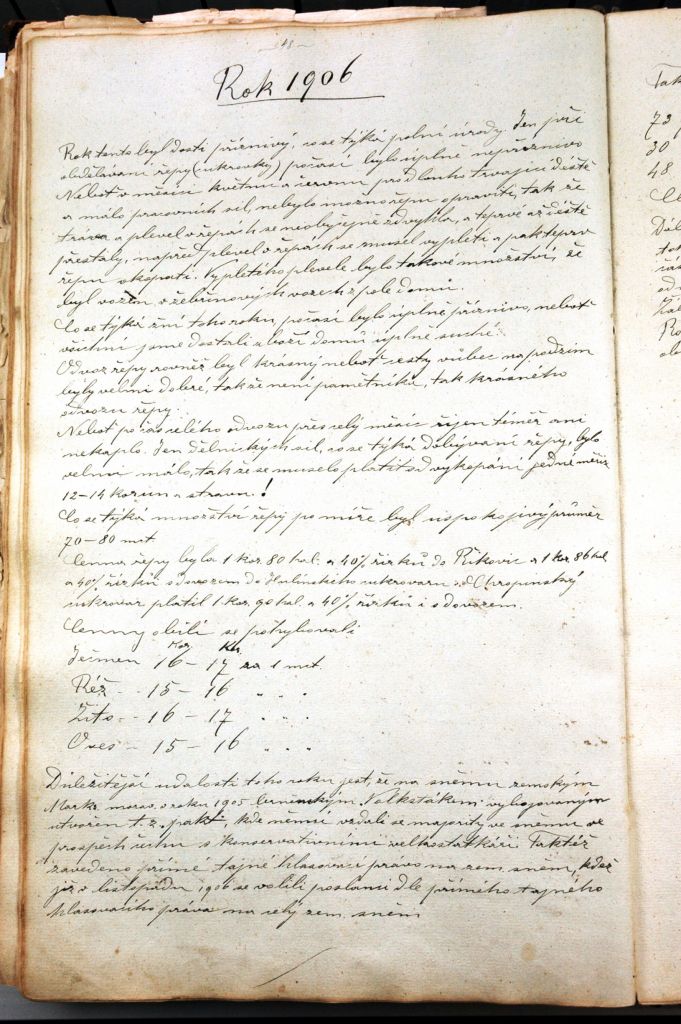 48
Rok 1906
Rok tento byl dosti příznivý, co se týká polní úrody. Jen při
obdělávání řepy (cukrovky) počasí bylo úplně nepříznivo
Neboť v měsíci květnu a červnu pro dlouho trvající deště
a málo pracovních sil, nebylo možno řepu opraviti, tak že
tráva a plevel v řepách se neobyčejně zdvykla, a teprvé až deště
přestaly, napřed plevel v řepách se musel vypleti a pak teprv
řepu okopati. Vypletého plevele bylo takové množství, že
byl vožen v žebřinových vozech z pole domu.
Co se týká žní toho roku, počasí bylo úplně příznivo, neboť
všichni jsme dostali zboží domů úplně suché.
Odvoz řepy rovněž byl krásný neboť cesty vůbec na podzim
byly velmi dobré, takže není pamětníka, tak krásného
odvozu řepy.
Neboť počas celého odvozu přes celý měsíc říjen téměř ani
nekaplo. Jen dělnických sil, co se týká dobývání řepy, bylo
velmi málo, tak že se muselo platit od vykopání jedné měřice
12–14 korun a stravu!
Co se týká množství řepy po míře byl uspokojivý průměr
70–80 mct
Cenna řepy byla 1 kor. 80 hal. a 40% řízků do Říkovic a 1 kor. 86 hal
a 40% řízků s dovozem do Hulínského cukrovaru. Chropinský
cukrovar platil 1 kor. 90 hal. a 40% řízků i s dovozem.
Cenny obilí se pohybovali
Kor. Kh.
Ječmen 16 – 17 za 1 mct.
Réž 15 – 16 " " "
Žito 16 – 17 " " "
Oves 15 – 16 " " "
Důležitější udalosti toho roku jest, že na sněmu zemským
Mark. morav. v roku 1905 berněnským Volkstákem vybojovaným
utvořen t. z. pakt, kde němci vzdali se majority ve sněmu ve
prospěch s konservativními velkostatkáři. Taktéž
zavedeno přímé tajné hlasovací právo na zem. sněm, kdež
již v listopadu 1906 se volili poslanci dle přímého tajného
hlasovacího práva na celý zem. sněm
Tak
73
30
48